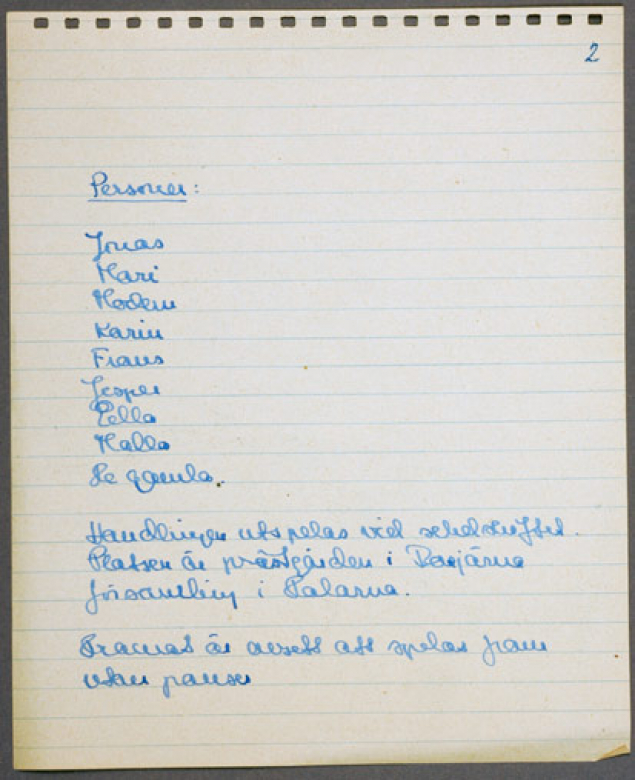 2
Personer:
Jonas
Mari
Modern
Karin
Frans
Jesper
Pella
Malla
De gamla.
Handlingen utspelas vid sekelskiftet.
Platsen är prästgården i
församling i Dalarna.
Dramat är avsett att spelas fram
utan pauser